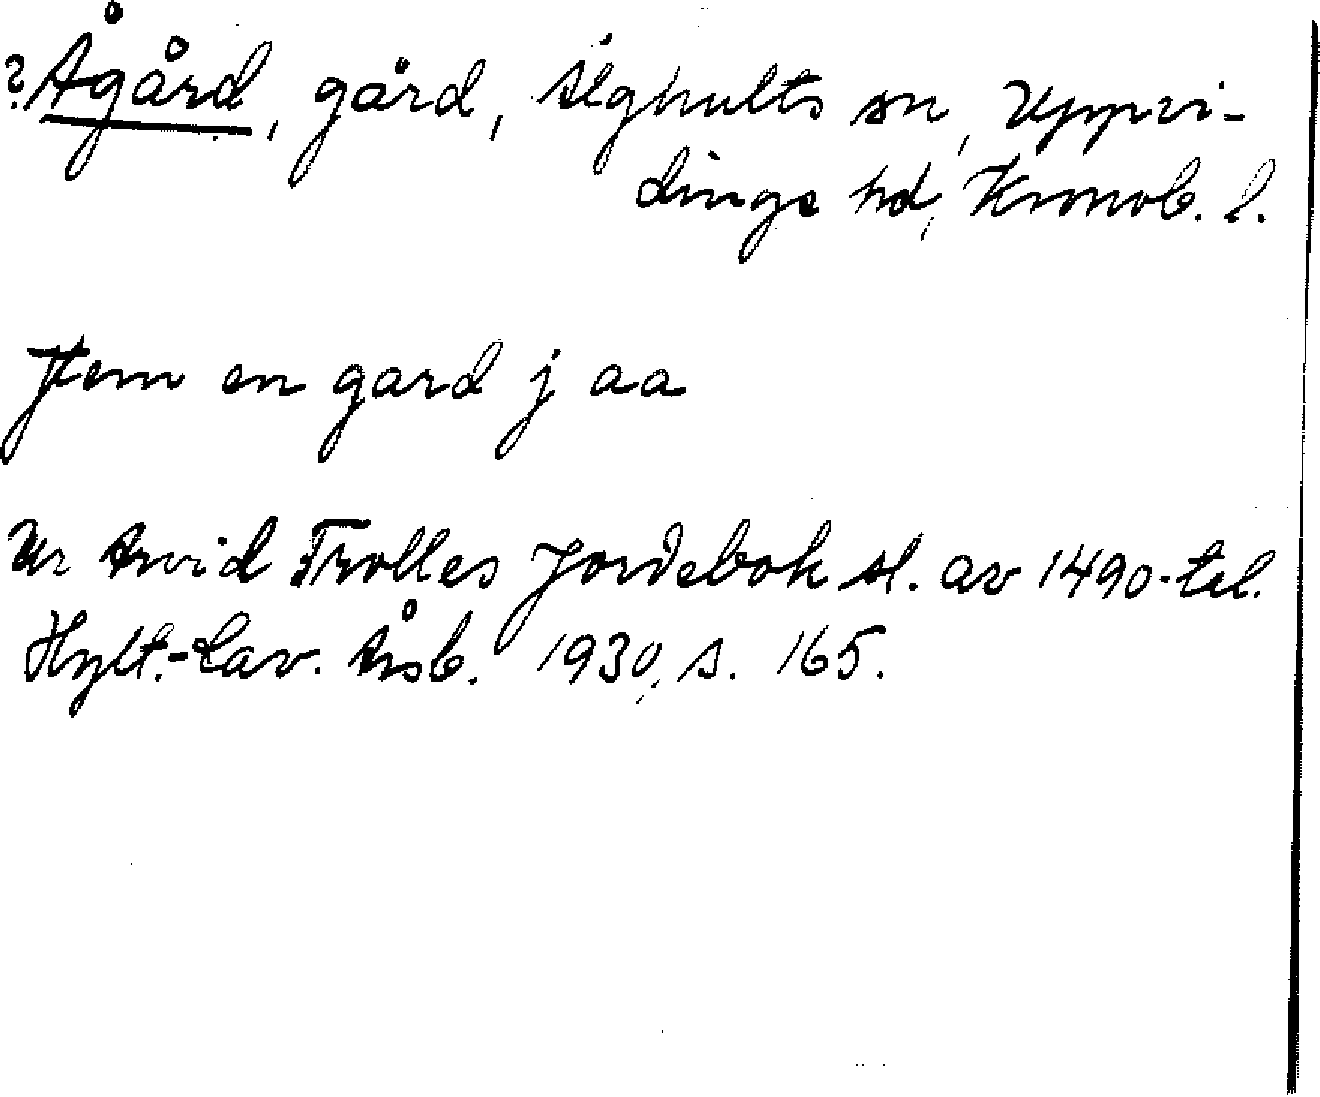 ? Ågård, gård, Älghults sn, Uppvi-
dinge hd, Kronob. l.
Jtem en gard j aa
Ur Arvid Trolles Jordebok sl. av 1490-tel.
Hylt.-Cav. Årsb. 1930, s. 165.